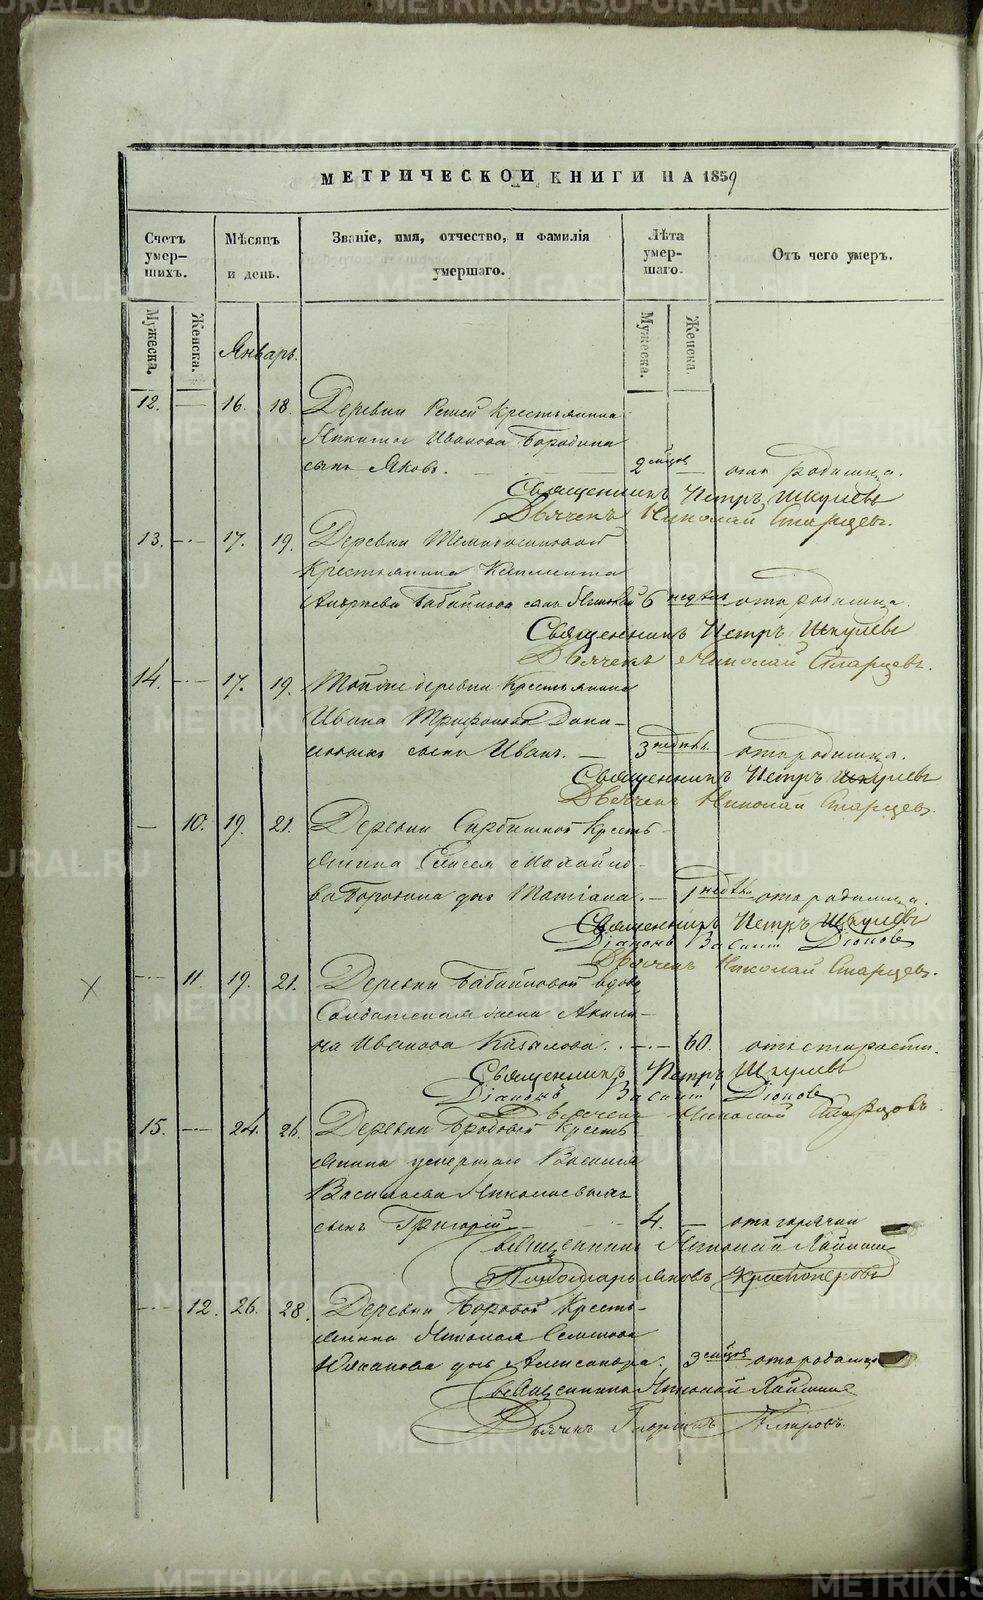 МЕТРИЧЕСКОЙ КНИГИ НА 1859
Счетъ умер-шихъ.
Мѣсяцъ и день.
Званіе, имя, отчество, и фамилія умершаго.
Лѣта умер-шаго.
Отъ чего умеръ.
Мужеска.
Женска.
Мужеска.
Женска.
Январь.
12. — 16. 18. Деревни Крестьянина
Никиты Иванова Бородина
сынъ Яковъ. 2 мѣсцов — отъ родимца.
Священникъ Петръ Шкулевъ
Дьячекъ Николай Старцевъ.
13. — 17. 19. Деревни
Крестьянина Климента
Андреева Бабайлова сынъ 6 недѣль отъ родимца.
Священникъ Петръ Шкулевъ
Дьячекъ Николай Старцевъ.
14. — 17. 19. Тойже деревни Крестьянина
Ивана Трифонова
сынъ Иванъ. — 3 недѣль. отъ родимца.
Священникъ Петръ Шкулевъ
Дьячекъ Николай Старцевъ.
— 10. 19. 21. Деревни Кресть-
янина Елисея Михайло-
ва Бородина дчь Татіана. — 1 недѣл. отъ родимца.
Священникъ Петръ Шкулевъ
Діаконъ Василій Діоновъ
Дьячекъ Николай Старцевъ.
— 11. 19. 21. Деревни Бабайловой вдова
Солдатская жена Акили-
на Иванова . — 60. отъ старости.
Священникъ Петръ Шкулевъ
Діаконъ Василій Діоновъ
Дьячекъ Николай Старцовъ.
15. — 24. 26. Деревни Бродовой Кресть
янина умершаго Василія
Васильева Николаевыхъ
сынъ Григорій — 4. — отъ горячки
Священникъ Николай
Пономарь Яковъ Красноперовъ
— 12. 26. 28. Деревни Боровой Кресть-
янина Николая Семенова
дчь Александра. 3 мѣсцов отъ родимца
Священникъ Николай
Дьячекъ Георгій
METRIKI.GASO-URAL.RU